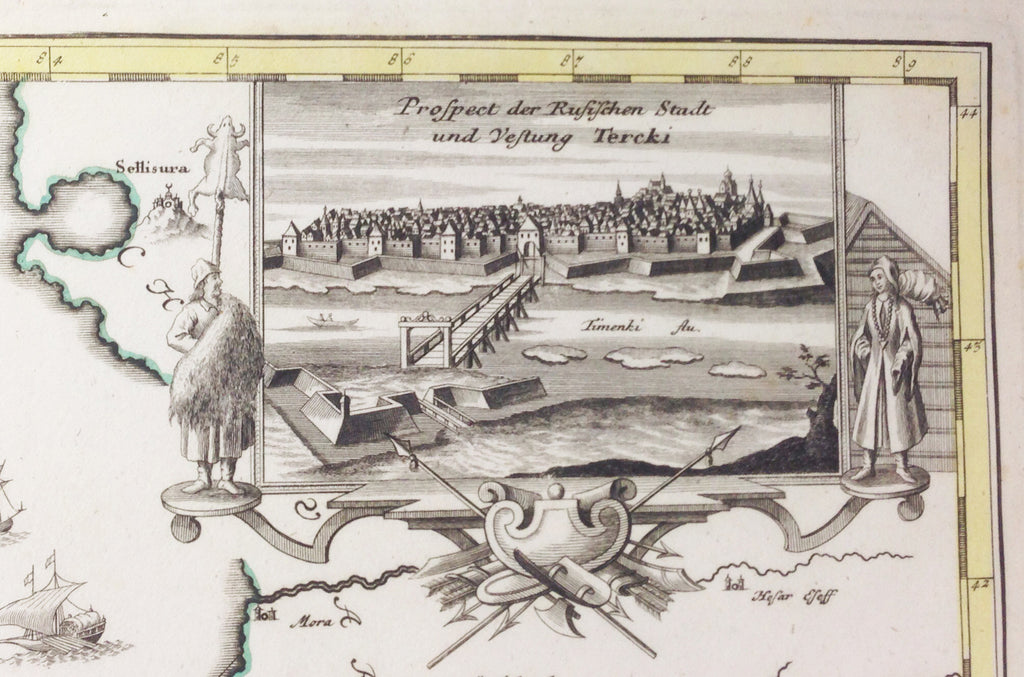 84 85 86 87 88 89
Proſpect der Ruſiſchen Stadt
und Veſtung Tercki
44
Sellisura
C
H
Timenki flu.
43
Mora
Hesar Eſeff
42